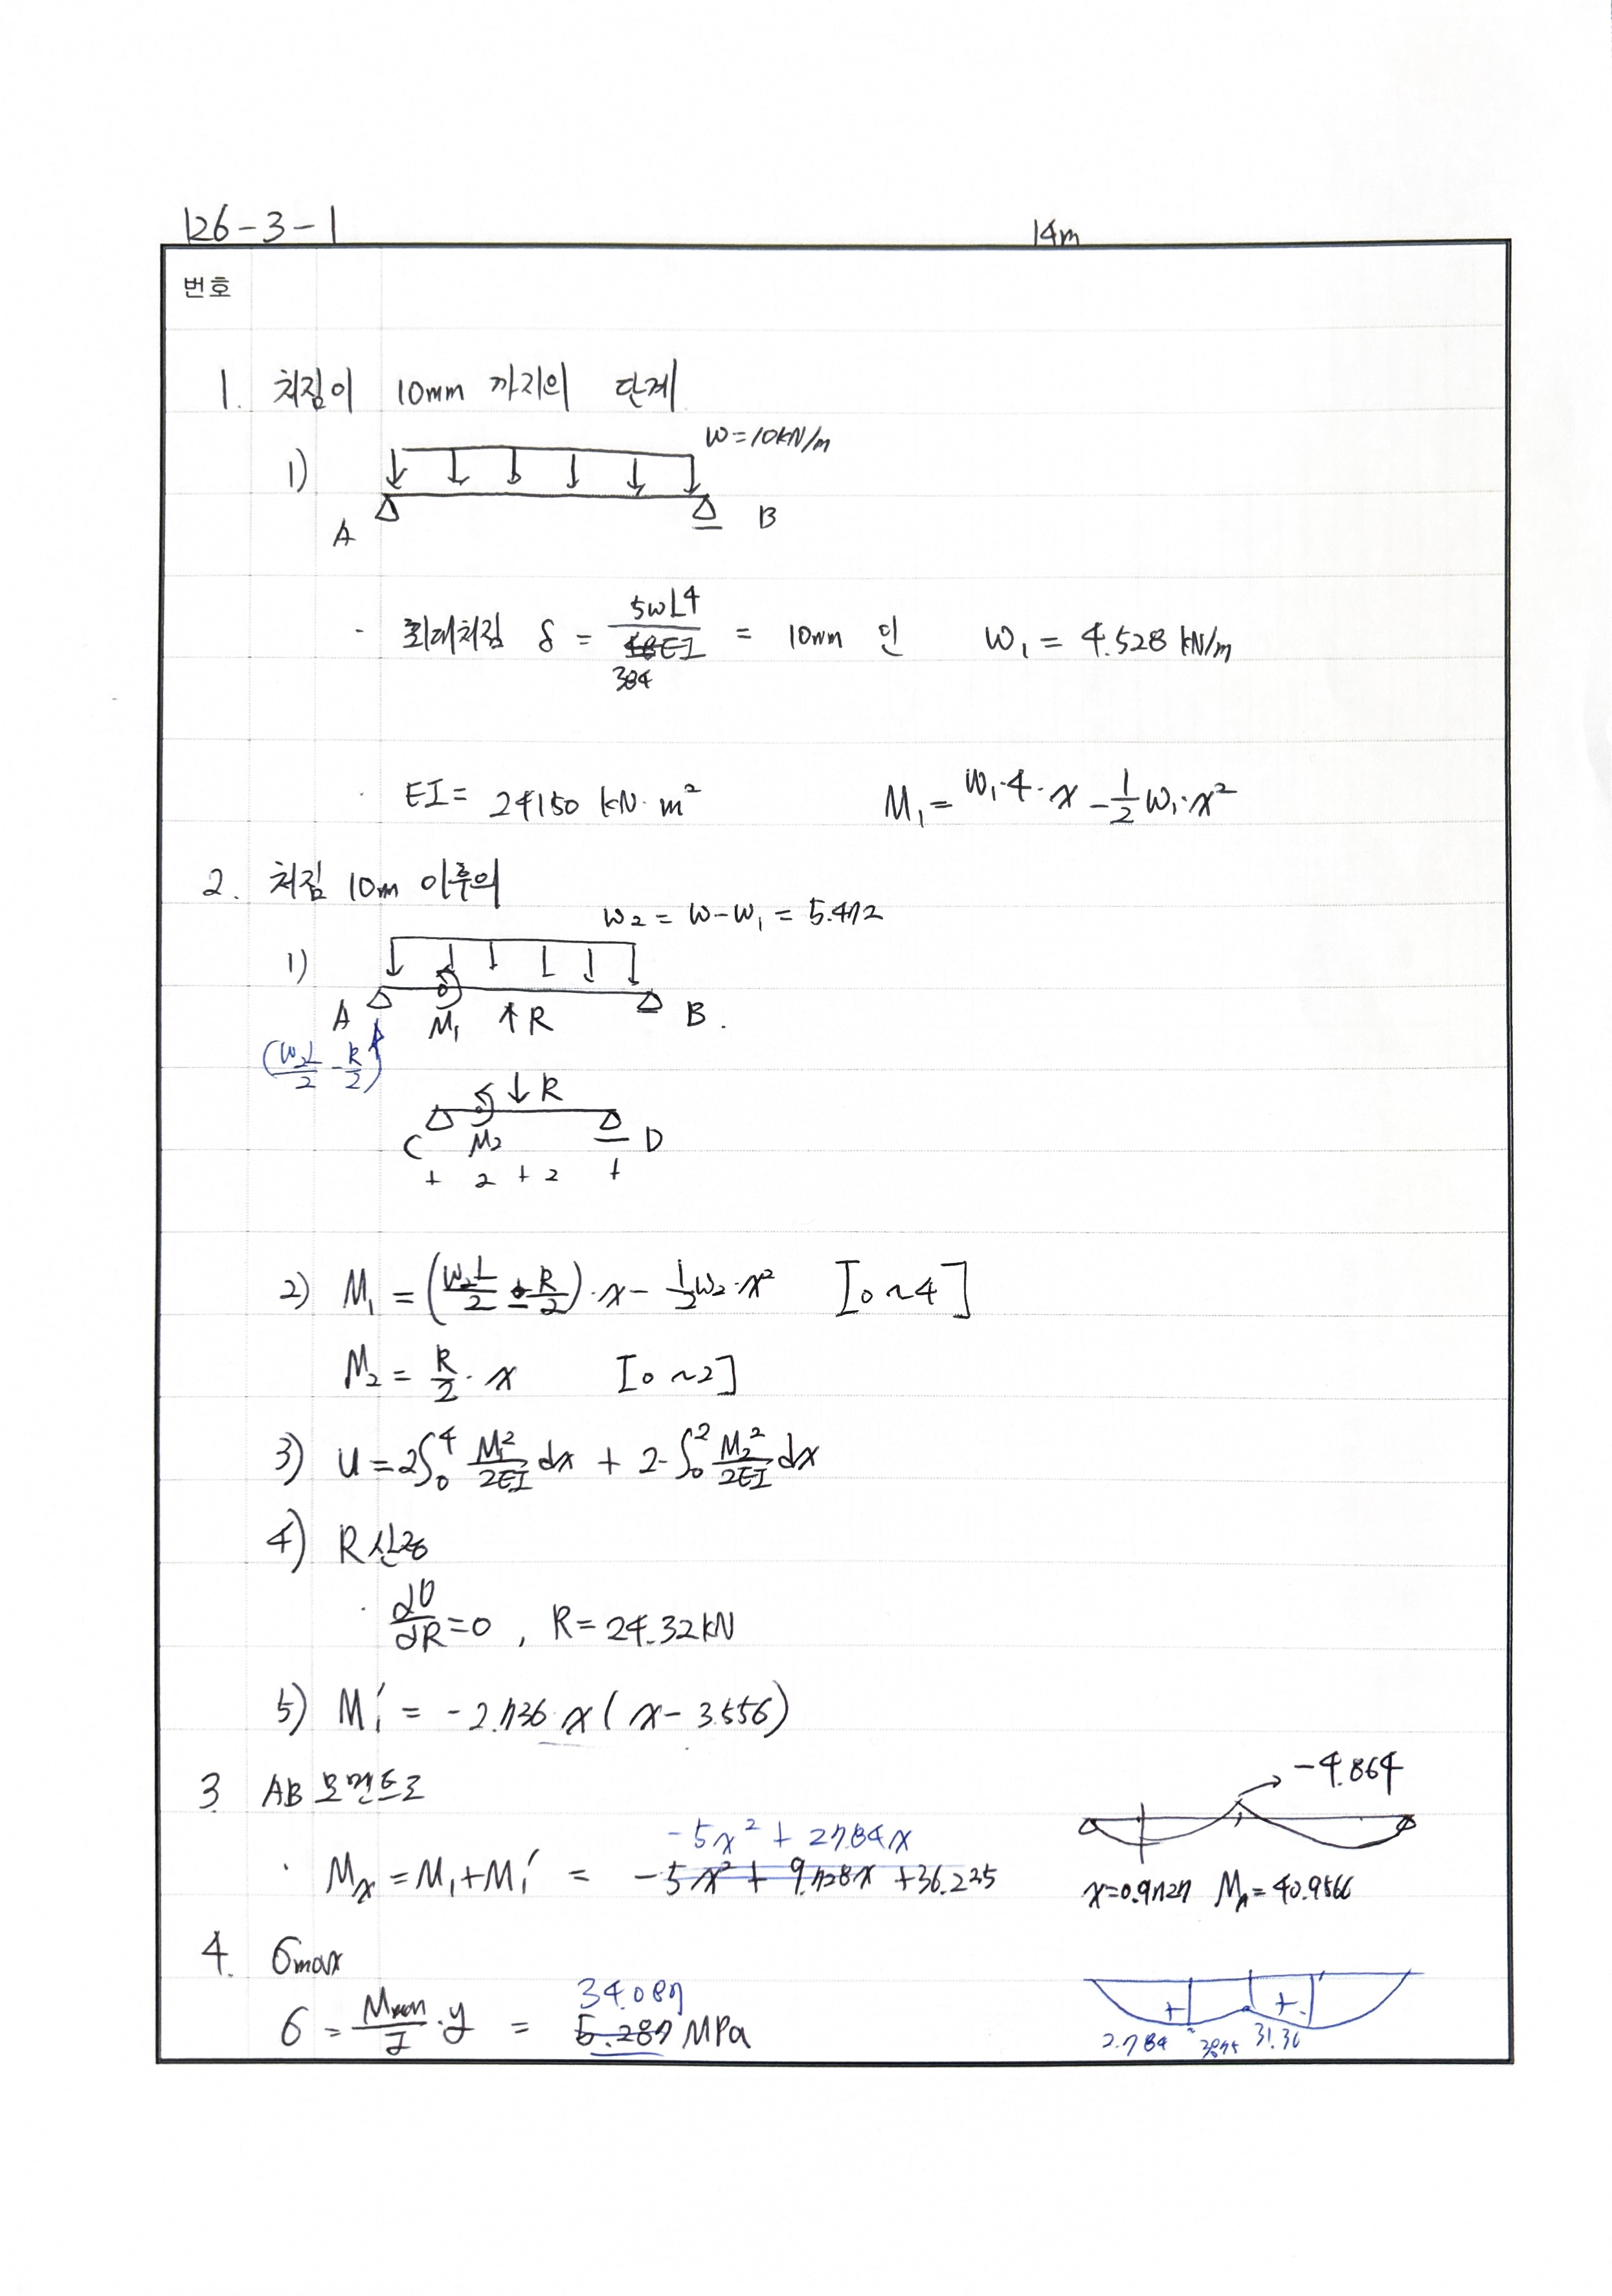 126-3-1
14m
번호
1. 처짐이 10mm 까지의 단계
w=10kN/m
1)
A B
· 최대처짐 δ = 5wL4 / 384EI = 10mm 인 w1 = 4.528 kN/m
· EI= 24150 kN·m² M1= w1·4·x - 1/2 w1·x²
2. 처짐 10m 이후의
w2 = w-w1 = 5.472
1)
A M1 ↑R B.
(w2L/2 - R/2)
↓R
C M2 D
+ 2 + 2 +
2) M1 = (w2L/2 - R/2)·x - 1/2 w2·x² [0~4]
M2 = R/2·x [0~2]
3) U=2∫0 4 M1²/2EI dx + 2·∫0 2 M2²/2EI dx
4) R 산정
· ∂U/∂R=0, R=24.32kN
5) M1′ = -2.736 x(x-3.556)
3. AB 모멘트로
-4.864
-5x² + 27.84x
· Mx=M1+M1′ = -5x² + 9.728x +36.225
x=0.9727 Mx=40.9566
4. σmax
34.087
σ = Mmax/I·y = 5.287 MPa
+ +
2.784 3.875 31.36